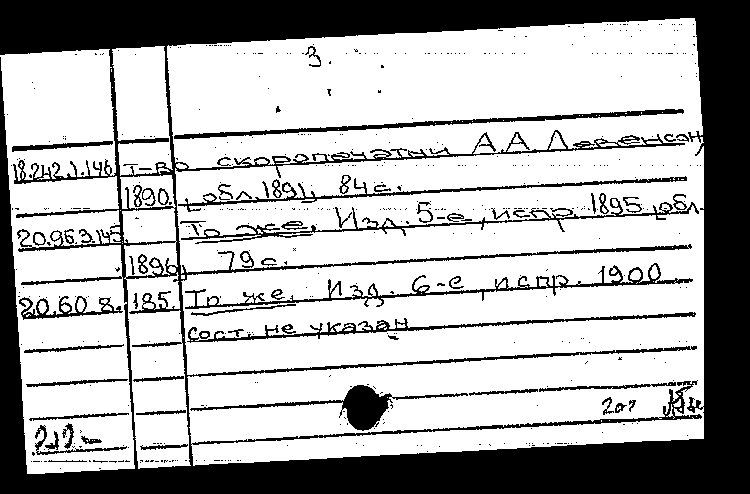 3.
18.242.1.146 т-во скоропечатни А.А. Левенсон,
1890 [обл. 1891], 84 с.
20.96.3.145. То же. Изд. 5-е, испр. 1895 [обл.
1896], 79 с.
20.60.8.185. То же. Изд. 6-е, испр. 1900
сост. не указан